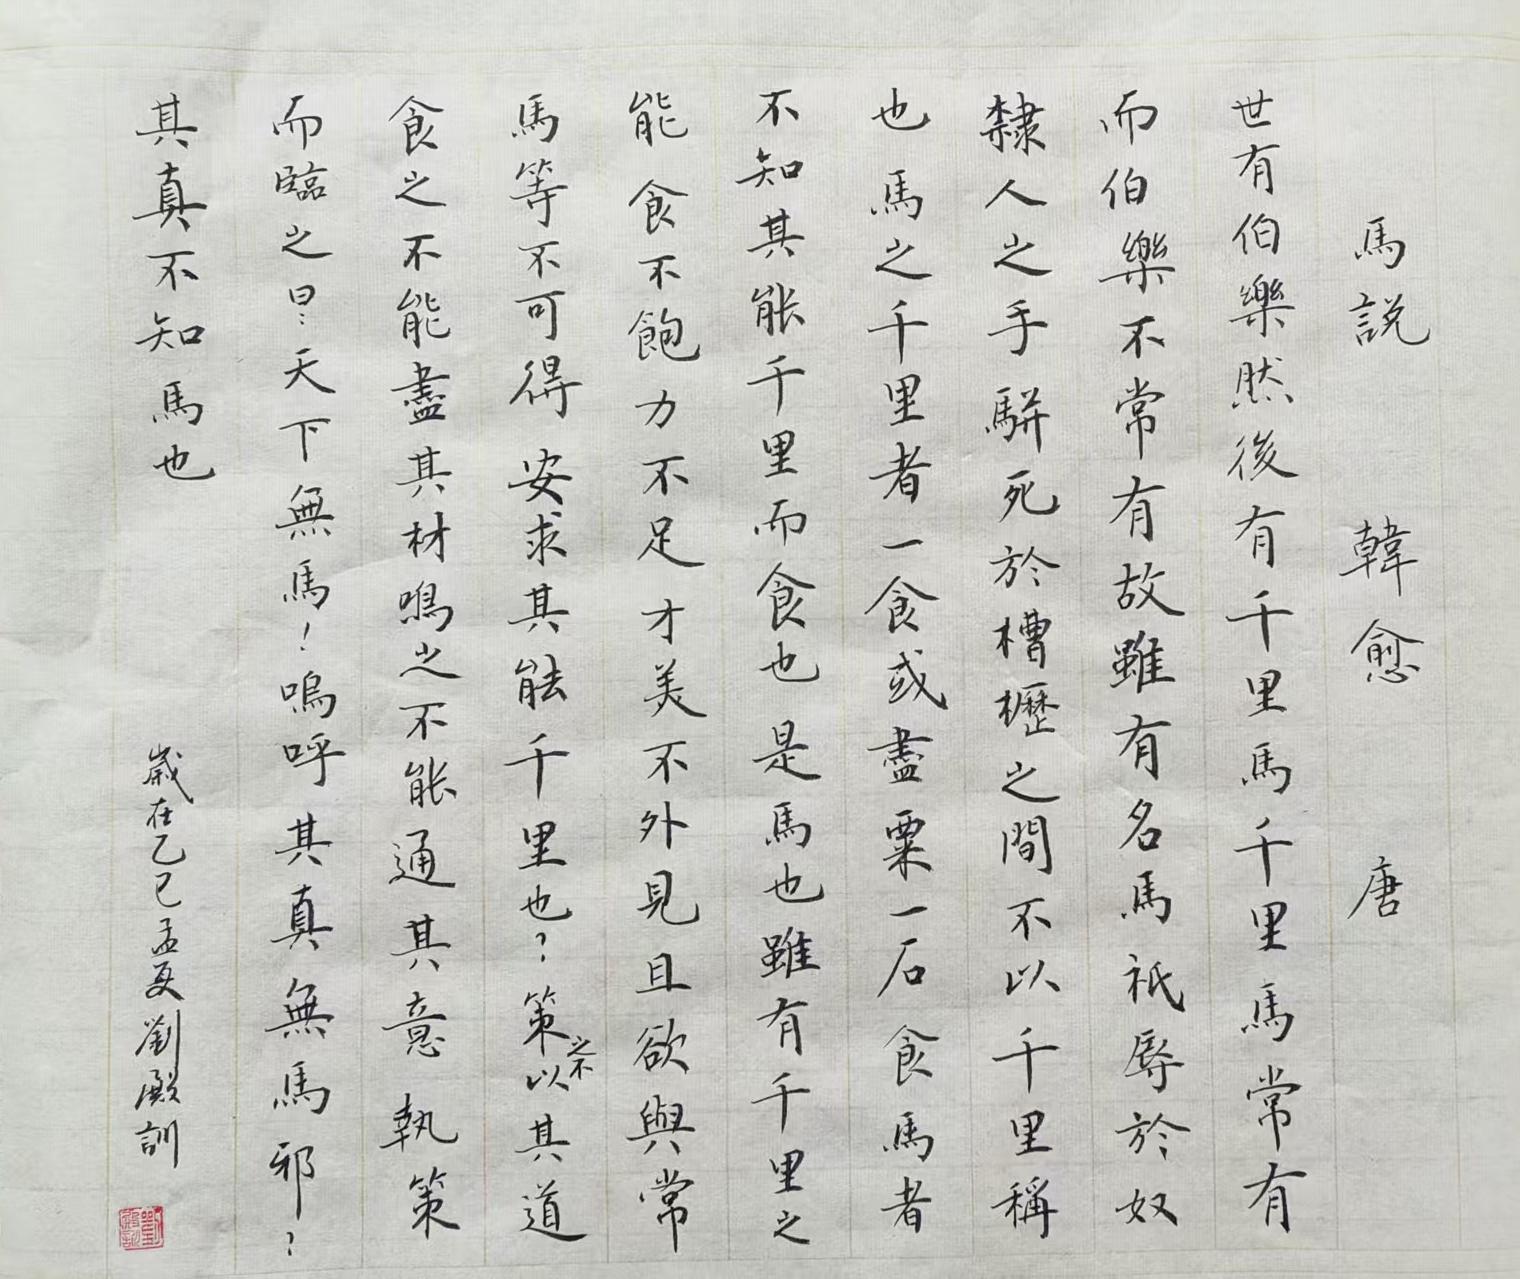 馬説 韓愈 唐
世有伯樂然後有千里馬千里馬常有
而伯樂不常有故雖有名馬祇辱於奴
隸人之手駢死於槽櫪之間不以千里稱
也馬之千里者一食或盡粟一石食馬者
不知其能千里而食也是馬也雖有千里之
能食不飽力不足才美不外見且欲與常
馬等不可得安求其能千里也?策之不以其道
食之不能盡其材鳴之不能通其意執策
而臨之曰:天下無馬!嗚呼其真無馬邪?
其真不知馬也
歲在乙巳孟夏劉殿訓
劉殿訓